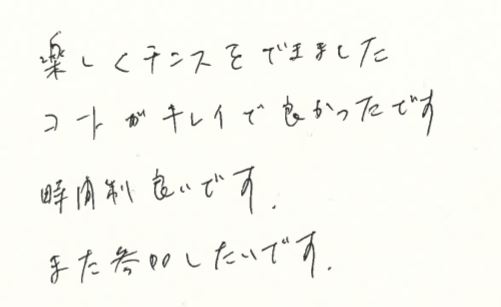 楽しくテニスをできました
コートがキレイで良かったです
時間制良いです.
また参加したいです.